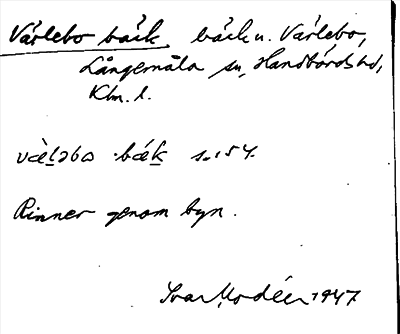 Värlebo bäck bäck u. Värlebo,
Långemåla sn, Handbörds hd,
Klm. l.
vä̀ləbo bäk s. 154.
Rinner genom byn.
Ivar Modéer 1947